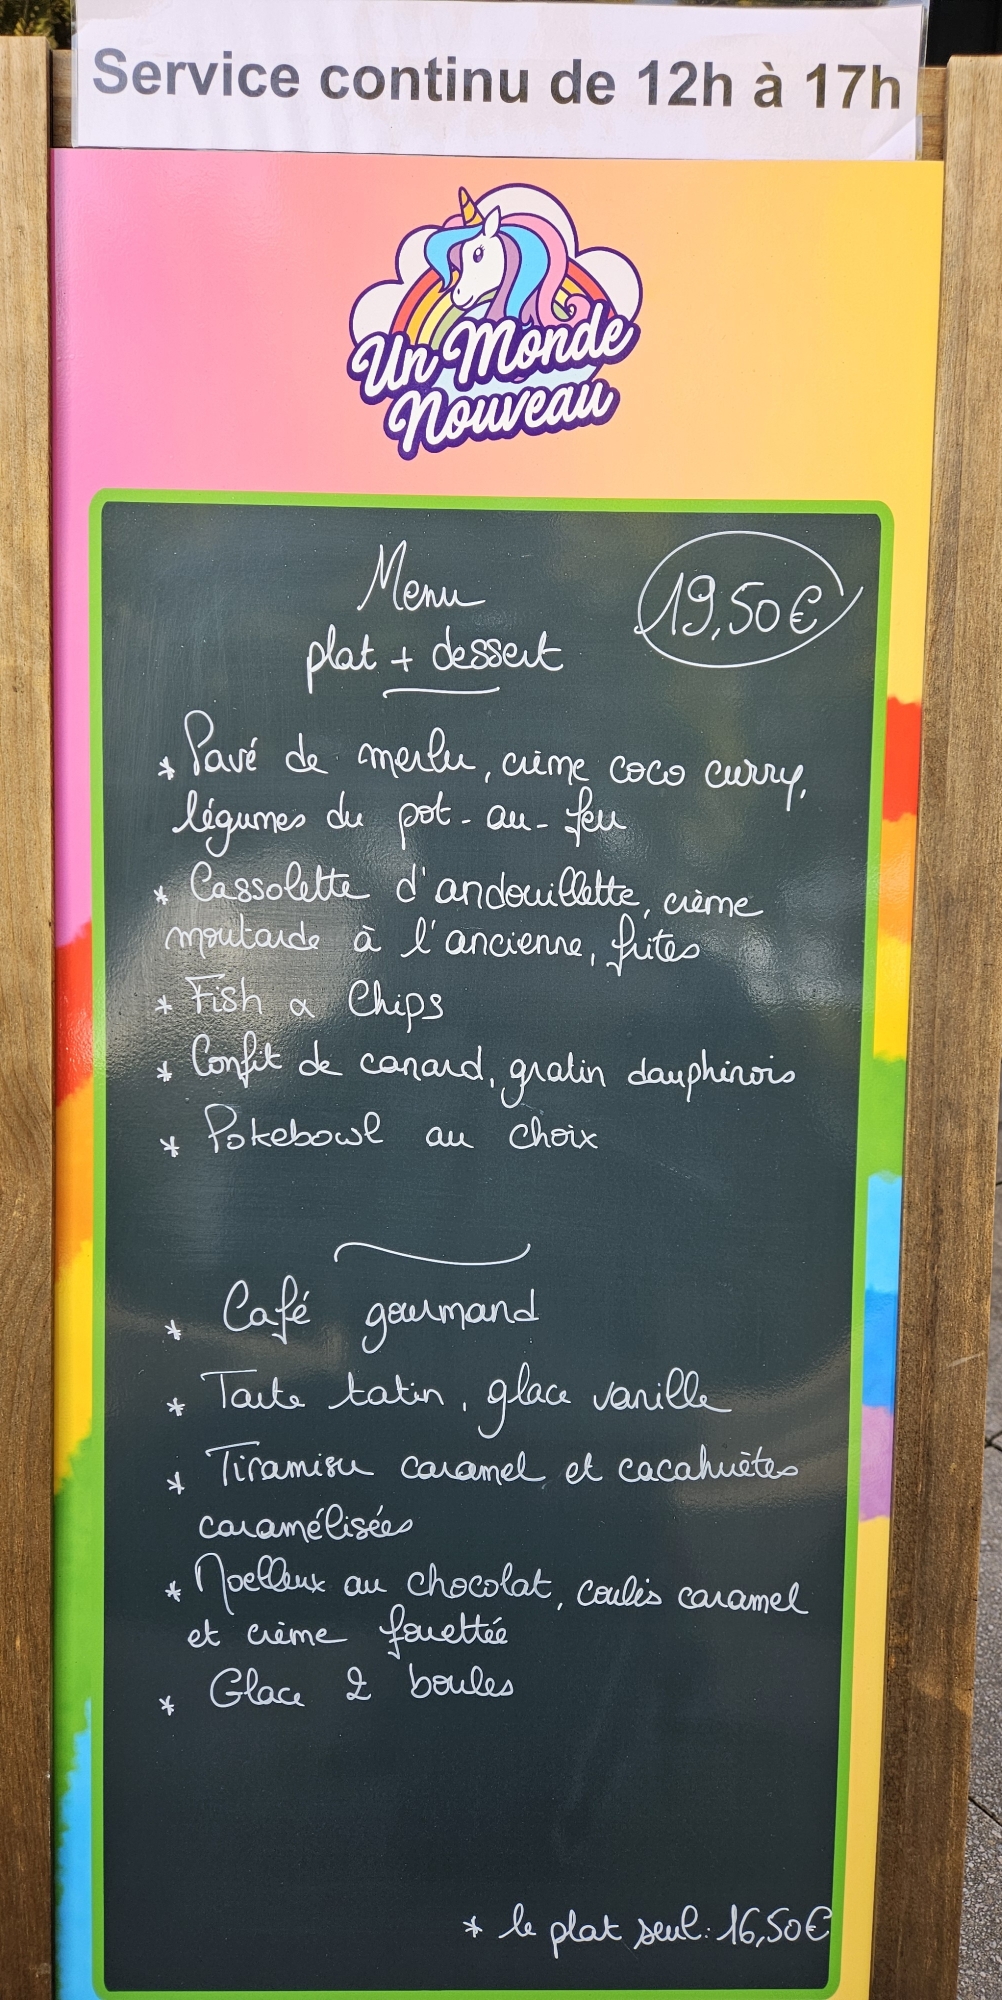 Service continu de 12h à 17h
Un Monde
Nouveau
Menu
19,50€
plat + dessert
* Pavé de merlu, crème coco curry,
légumes du pot-au-feu
* Cassolette d'andouillette, crème
moutarde à l'ancienne, frites
* Fish & Chips
* Confit de canard, gratin dauphinois
* Pokebowl au choix
* Café gourmand
* Tarte tatin, glace vanille
* Tiramisu caramel et cacahuètes
caramélisées
* Moelleux au chocolat, coulis caramel
et crème fouettée
* Glace 2 boules
* le plat seul : 16,50€